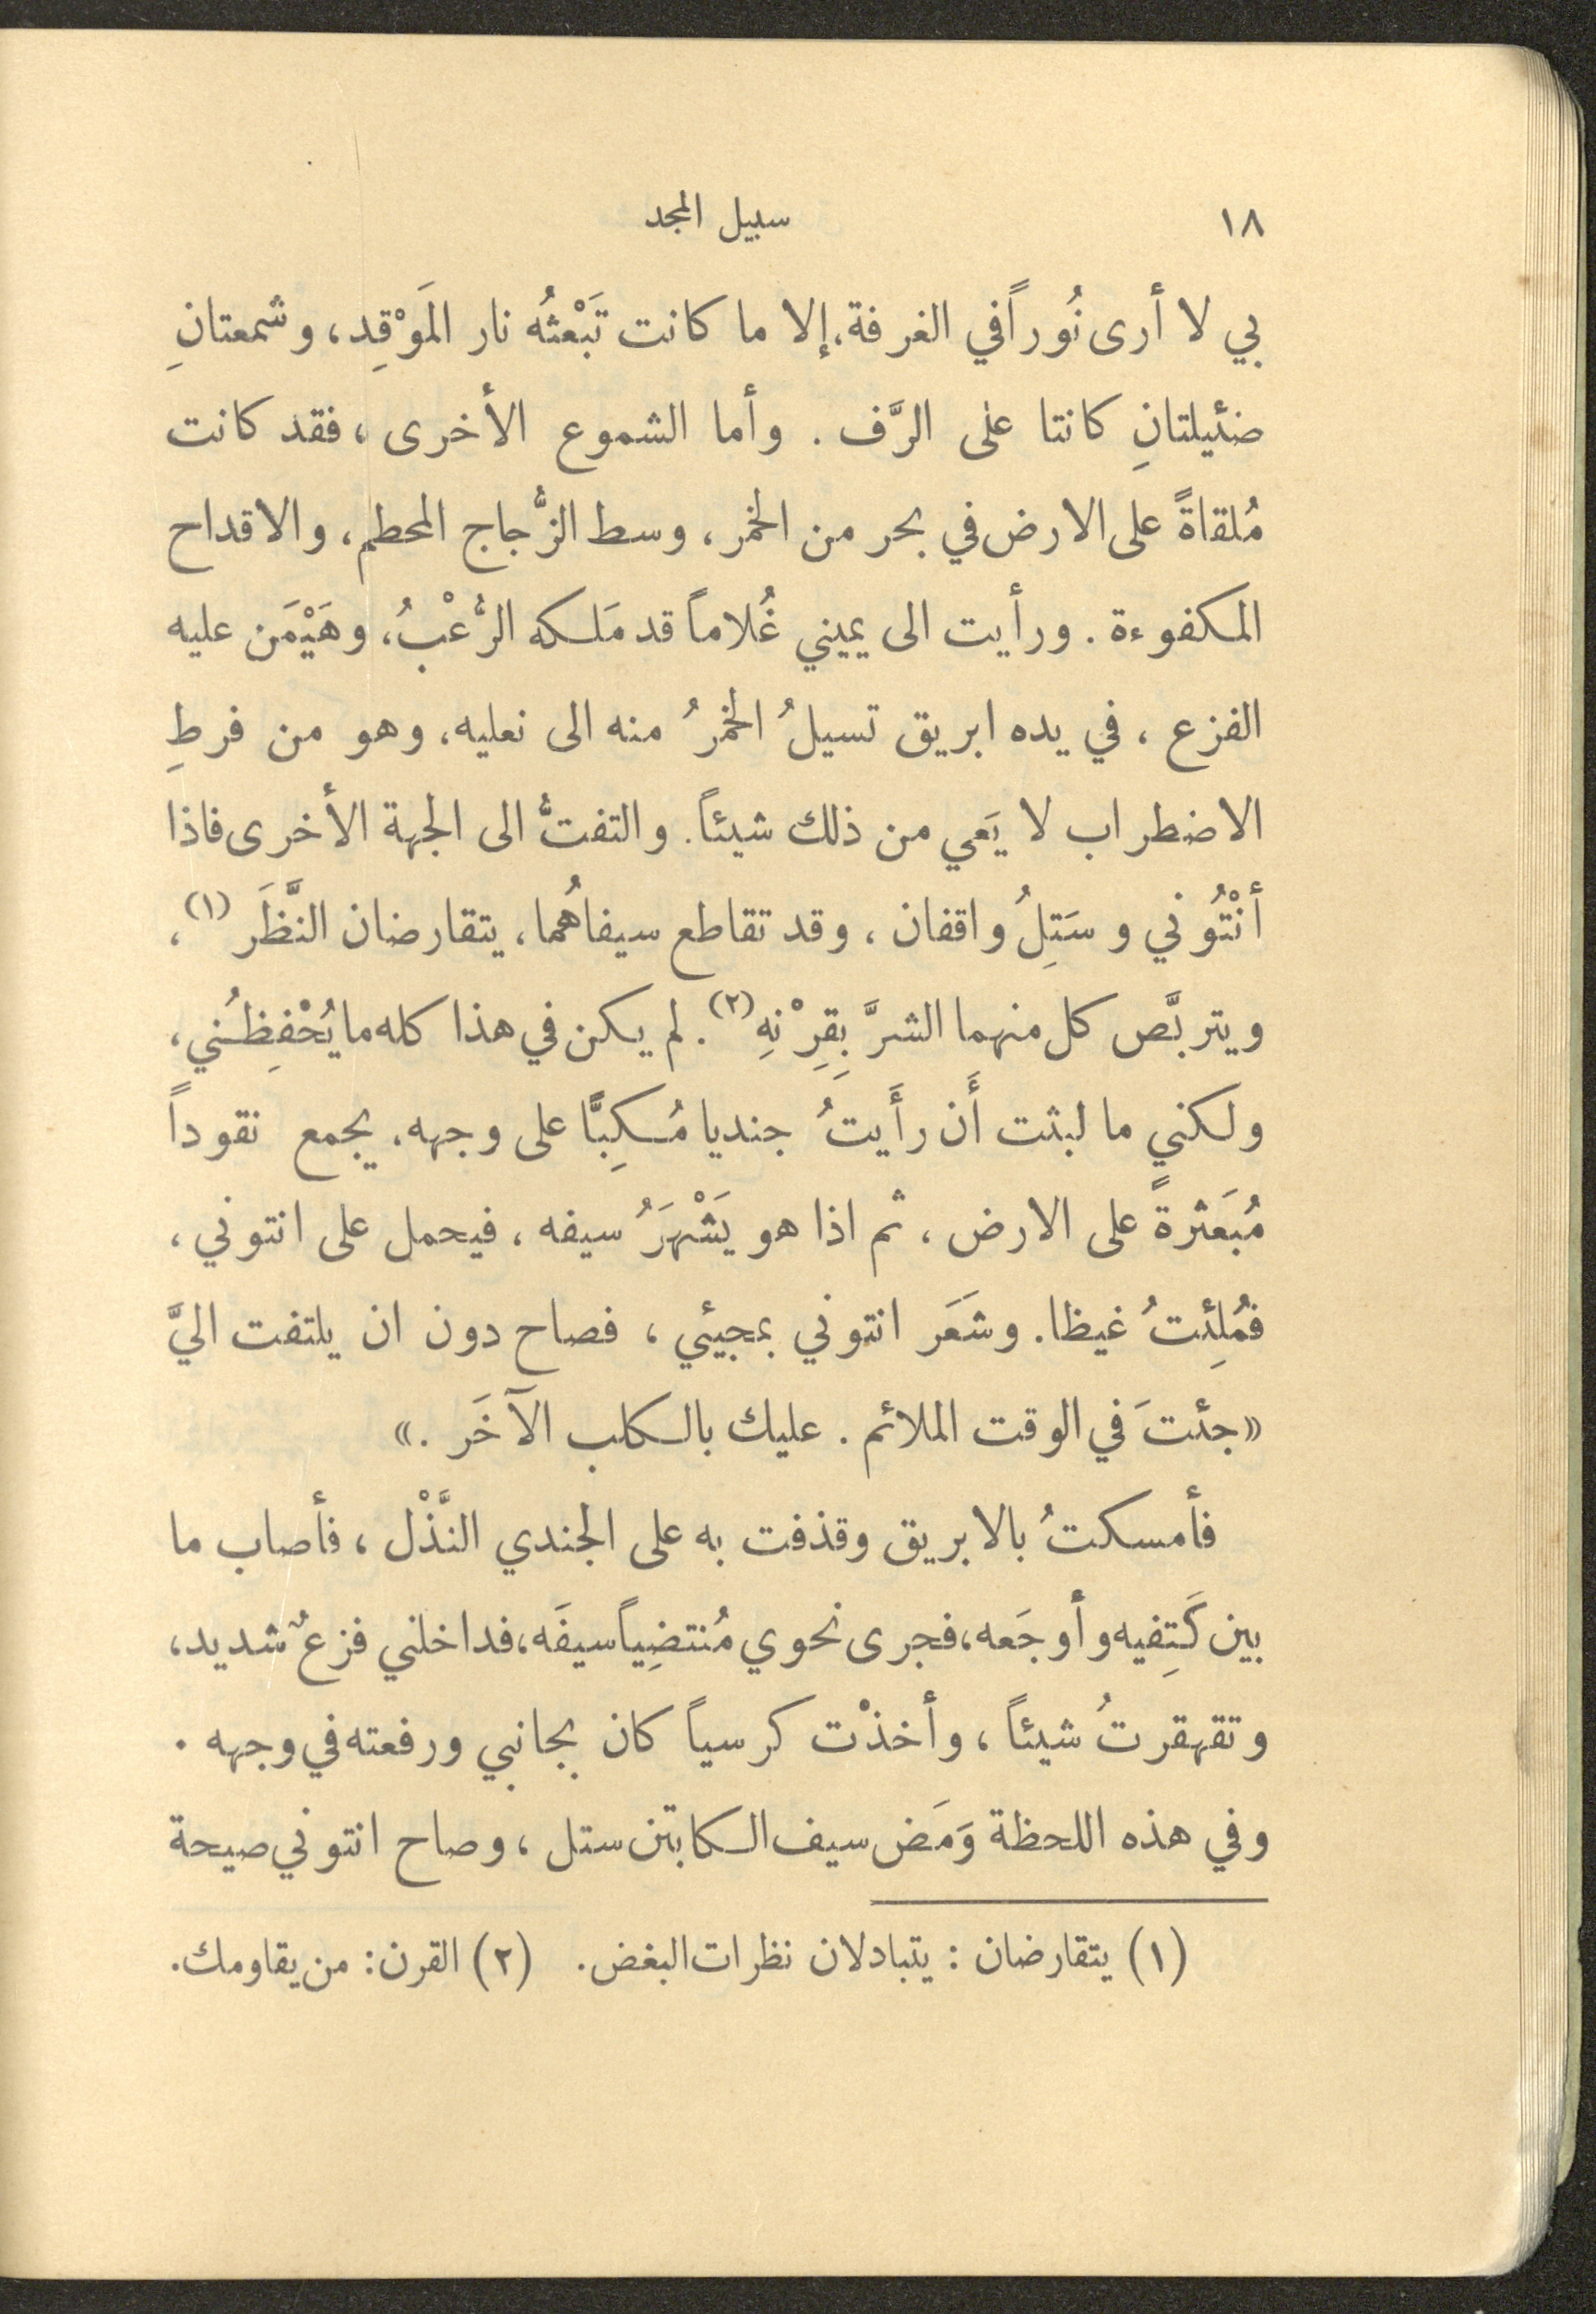 ١٨
سبيل المجد
بي لا أرى نُوراً في الغرفة، إلا ما كانت تَبْعثُه نار المَوْقِد، وشمعتانِ
ضئيلتانِ كانتا على الرَّف . وأما الشموع الأخرى ، فقد كانت
مُلقاةً على الارض في بحر من الخمر، وسط الزُّجاج المحطم، والاقداح
المكفوءة . ورأيت الى يميني غُلاماً قد مَلكه الرُّعْبُ، وهَيْمَن عليه
الفزع ، في يده ابريق تسيلُ الخمرُ منه الى نعليه، وهو من فرطِ
الاضطراب لا يَعي من ذلك شيئاً. والتفتُّ الى الجهة الأخرى فاذا
أنْتُوني وسَتِلُ واقفان ، وقد تقاطع سيفاهُما، يتقارضان النَّظَر (١)،
ويتربَّص كل منهما الشرَّ بِقِرْنِهِ (٢). لم يكن في هذا كله ما يُحْفِظُني،
ولكني ما لبثت أَن رأَيتُ جنديا مُكِبًّا على وجهه، يجمع نقوداً
مُبَعثرةً على الارض ، ثم اذا هو يَشْهَرُ سيفه ، فيحمل على انتوني ،
فمُلِئتُ غيظا. وشَعَر انتوني بمجيئي ، فصاح دون ان يلتفت اليَّ
«جئتَ في الوقت الملائم . عليك بالكلب الآخَر .»
فأمسكتُ بالابريق وقذفت به على الجندي النَّذْل ، فأصاب ما
بين كَتِفيه وأوجَعه، فجرى نحوي مُنتضِياً سيفَه، فداخلني فزعٌ شديد،
وتقهقرتُ شيئاً ، وأخذْت كرسياً كان بجانبي ورفعته في وجهه .
وفي هذه اللحظة وَمَض سيف الكابتن ستل ، وصاح انتوني صيحة
(١) يتقارضان : يتبادلان نظرات البغض. (٢) القرن: من يقاومك.